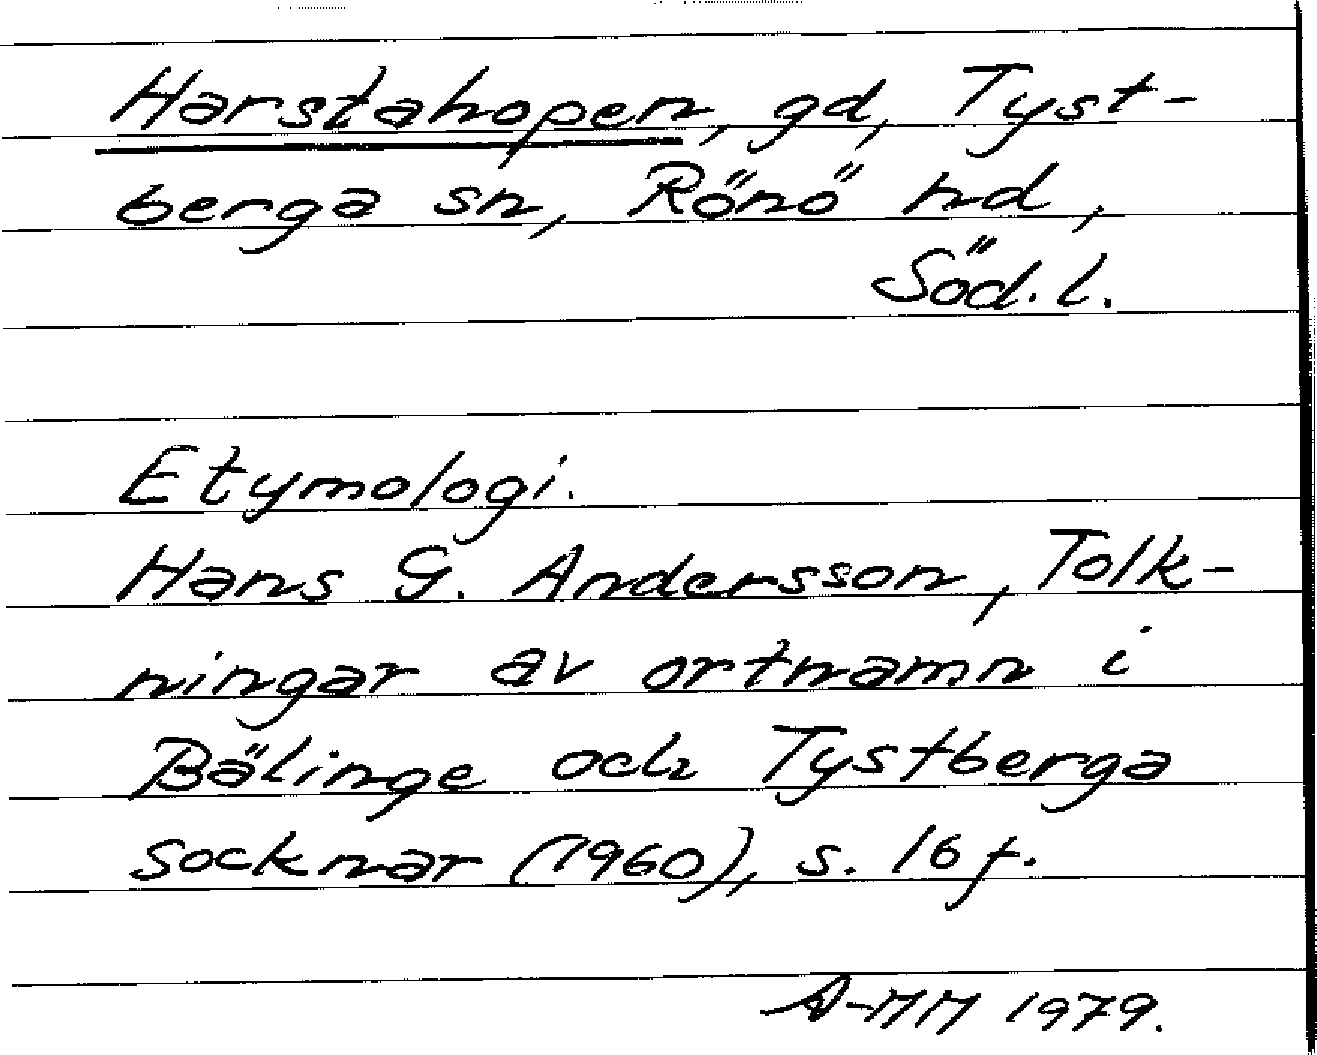 Harstahopen, gd, Tyst-
berga sn, Rönö hd,
Söd. l.
Etymologi.
Hans G. Andersson, Tolk-
ningar av ortnamn i
Bälinge och Tystberga
socknar (1960), s. 16 f.
A-MM 1979.